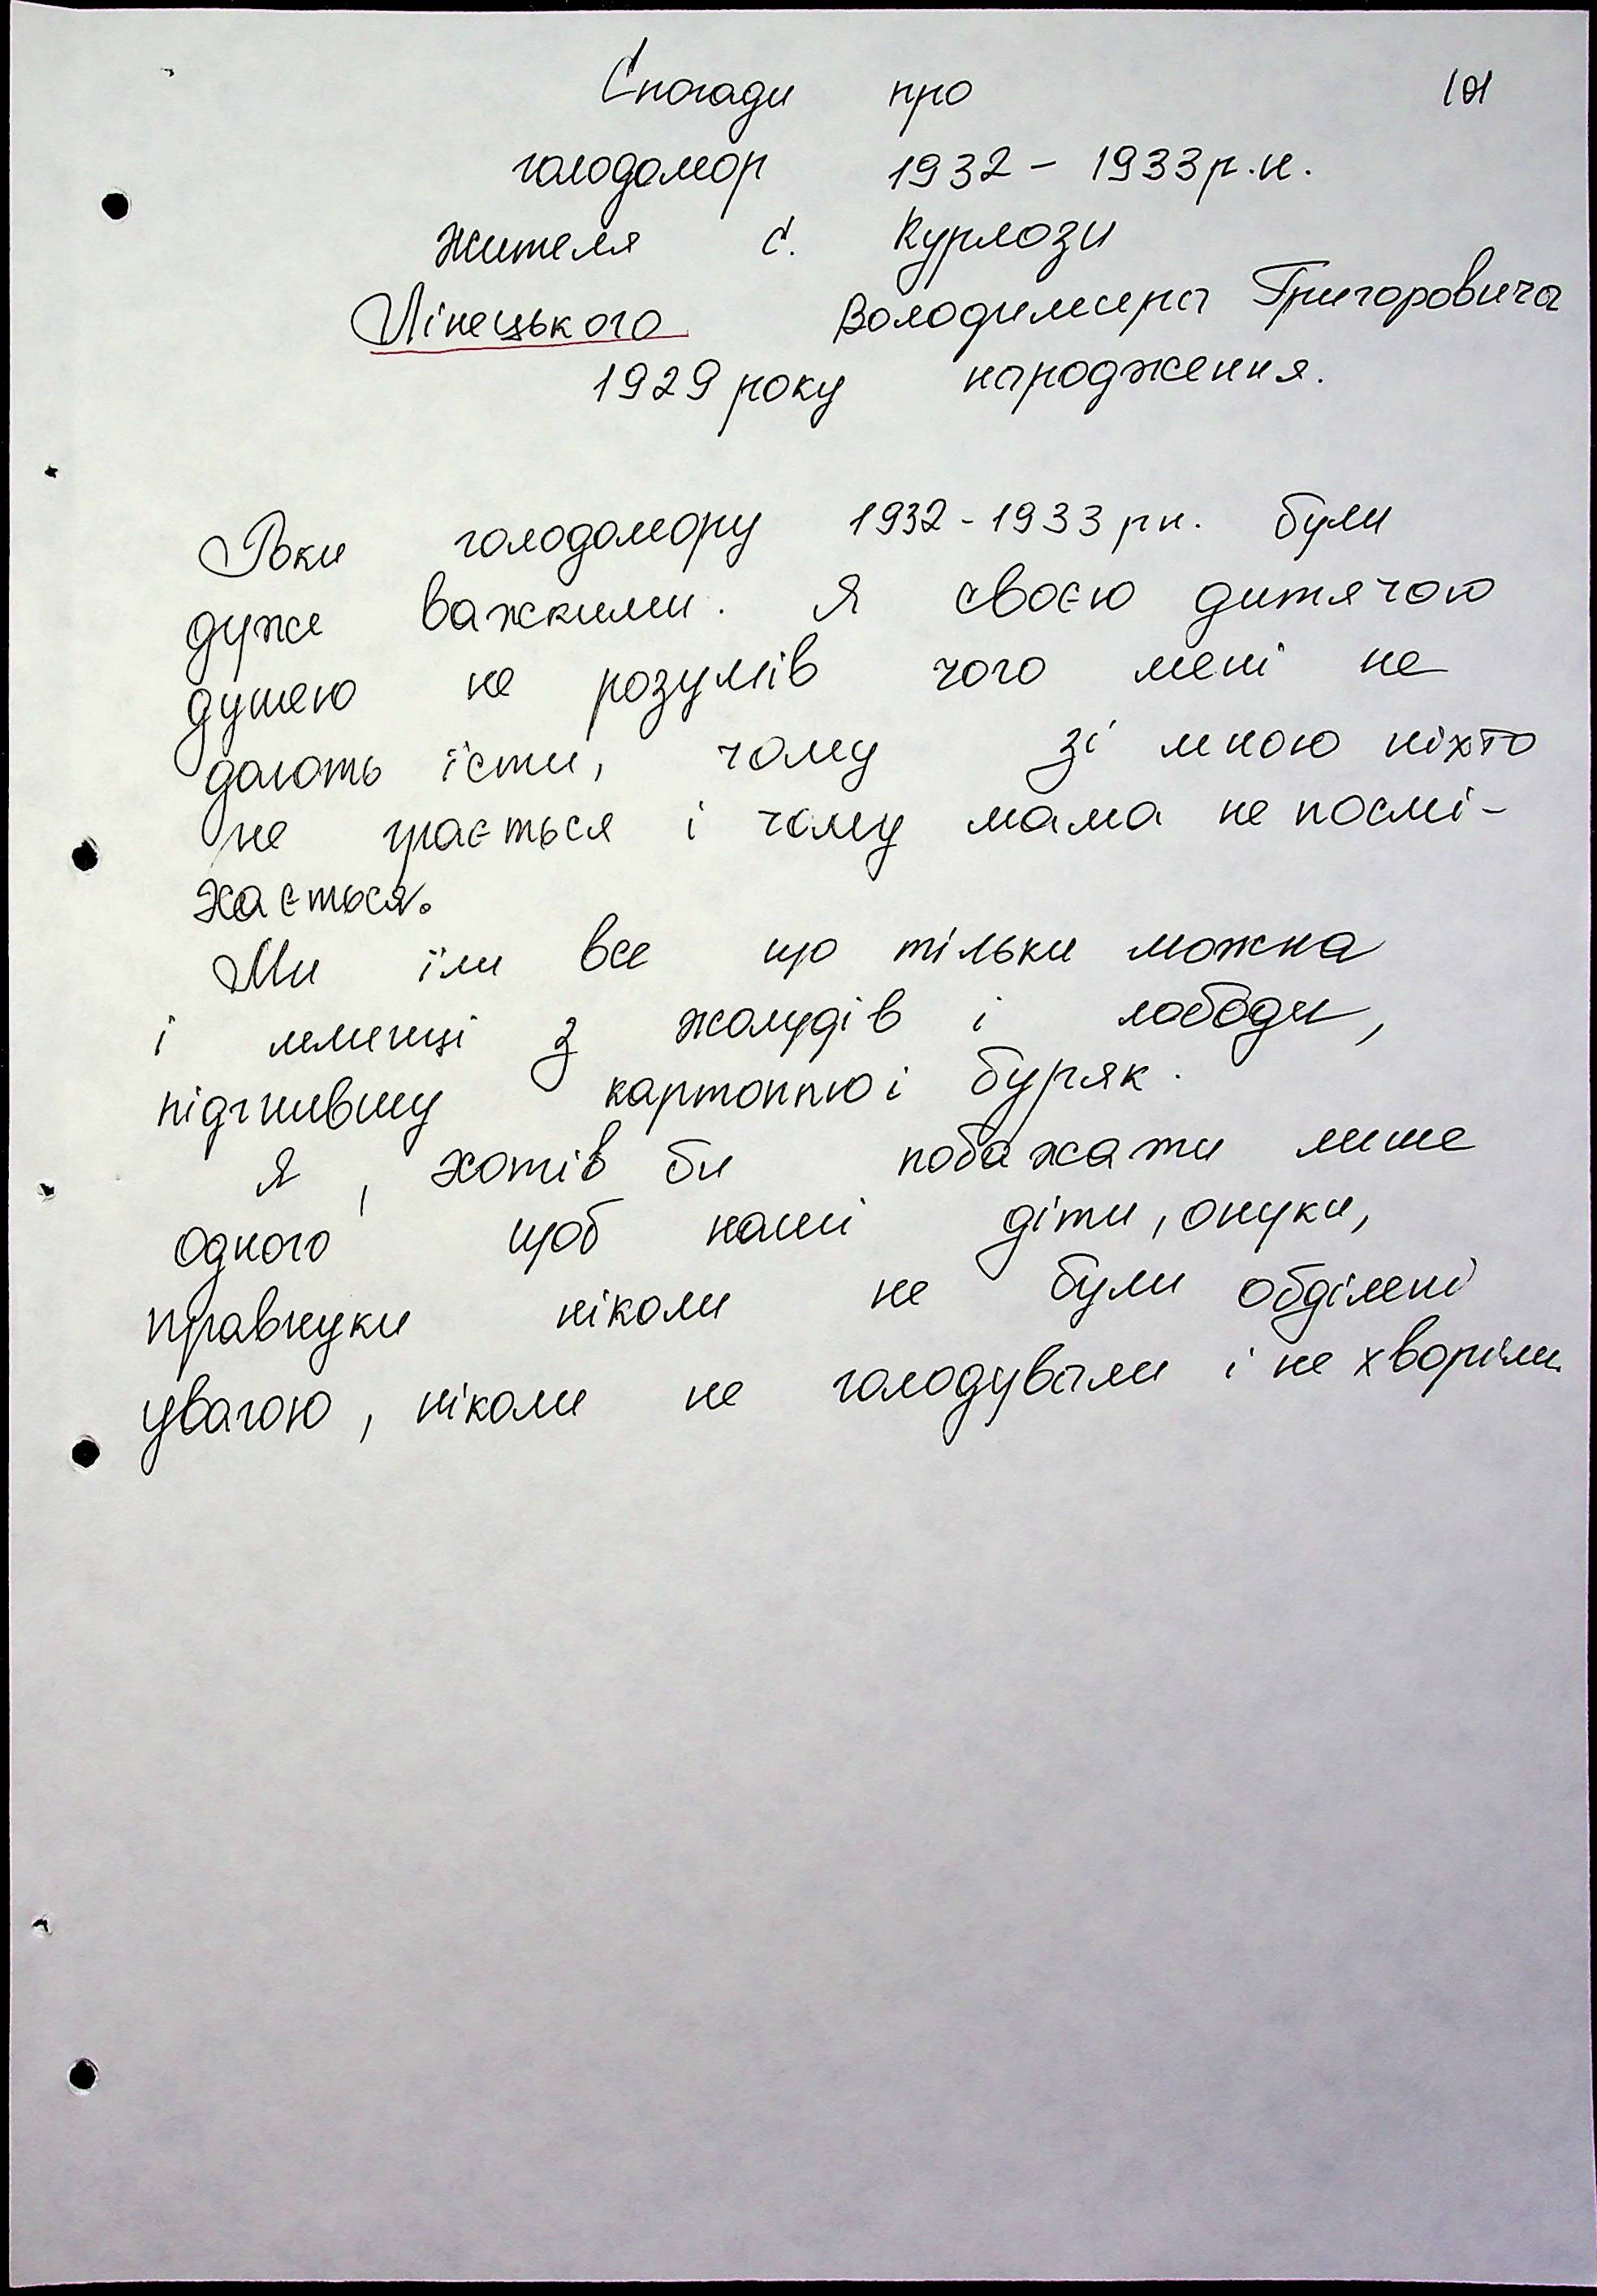 Спогади про 101
голодомор 1932 - 1933 р.н.
жителя с. Курлози
Лінецького Володимира Григоровича
1929 року народження.
Роки голодомору 1932-1933 рн. були
дуже важкими. Я своєю дитячою
душею не розумів чого мені не
дають їсти, чому зі мною ніхто
не грається і чому мама не посмі-
хається.
Ми їли все що тільки можна
і млинці з жолудів і лободи,
підгнившу картоплю і буряк.
Я, хотів би побажати лише
одного щоб наші діти, онуки,
правнуки ніколи не були обділені
увагою, ніколи не голодували і не хворіли